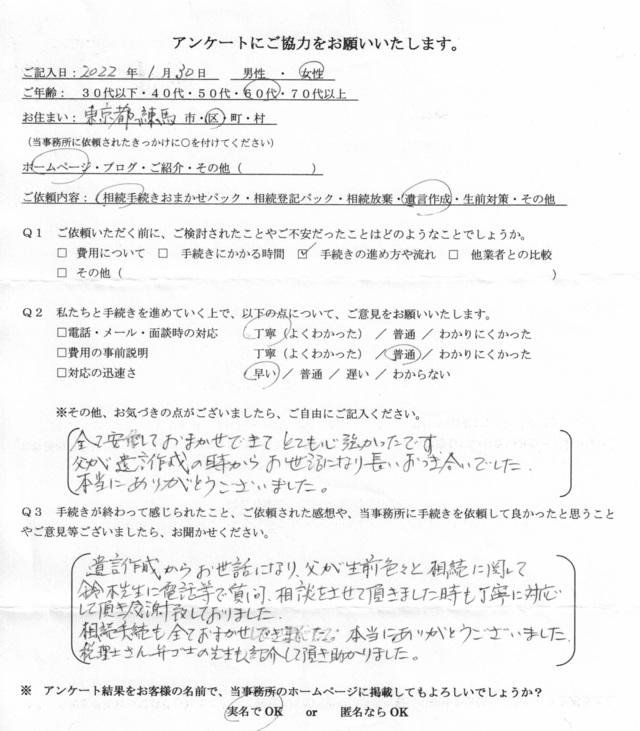 アンケートにご協力をお願いいたします。
ご記入日:2022 年 1 月 30 日 男性 ・ 女性
ご年齢: 30代以下・40代・50代・60代・70代以上
お住まい: 東京都 練馬 市・区・町・村
(当事務所に依頼されたきっかけに○を付けてください)
ホームページ・ブログ・ご紹介・その他( )
ご依頼内容:(相続手続きおまかせパック・相続登記パック・相続放棄・遺言作成・生前対策・その他
Q1 ご依頼いただく前に、ご検討されたことやご不安だったことはどのようなことでしょうか。
□ 費用について □ 手続きにかかる時間 ☑ 手続きの進め方や流れ □ 他業者との比較
□ その他( )
Q2 私たちと手続きを進めていく上で、以下の点について、ご意見をお願いいたします。
□電話・メール・面談時の対応 丁寧(よくわかった) / 普通 / わかりにくかった
□費用の事前説明 丁寧(よくわかった) / 普通 / わかりにくかった
□対応の迅速さ 早い / 普通 / 遅い / わからない
※その他、お気づきの点がございましたら、ご自由にご記入ください。
全て安心しておまかせできて とても心強かったです。
父が遺言作成の時からお世話になり長いお付き合いでした。
本当にありがとうございました。
Q3 手続きが終わって感じられたこと、ご依頼された感想や、当事務所に手続きを依頼して良かったと思うこと
やご意見等ございましたら、お聞かせください。
遺言作成からお世話になり、父が生前色々と相続に関して
鈴木先生に電話等で質問、相談をさせて頂きました時も丁寧に対応
して頂き感謝致しておりました。
相続手続も全ておまかせでき 本当にありがとうございました。
税理士さん弁ゴ士の先生も紹介して頂き助かりました。
※ アンケート結果をお客様の名前で、当事務所のホームページに掲載してもよろしいでしょうか?
実名でOK or 匿名ならOK